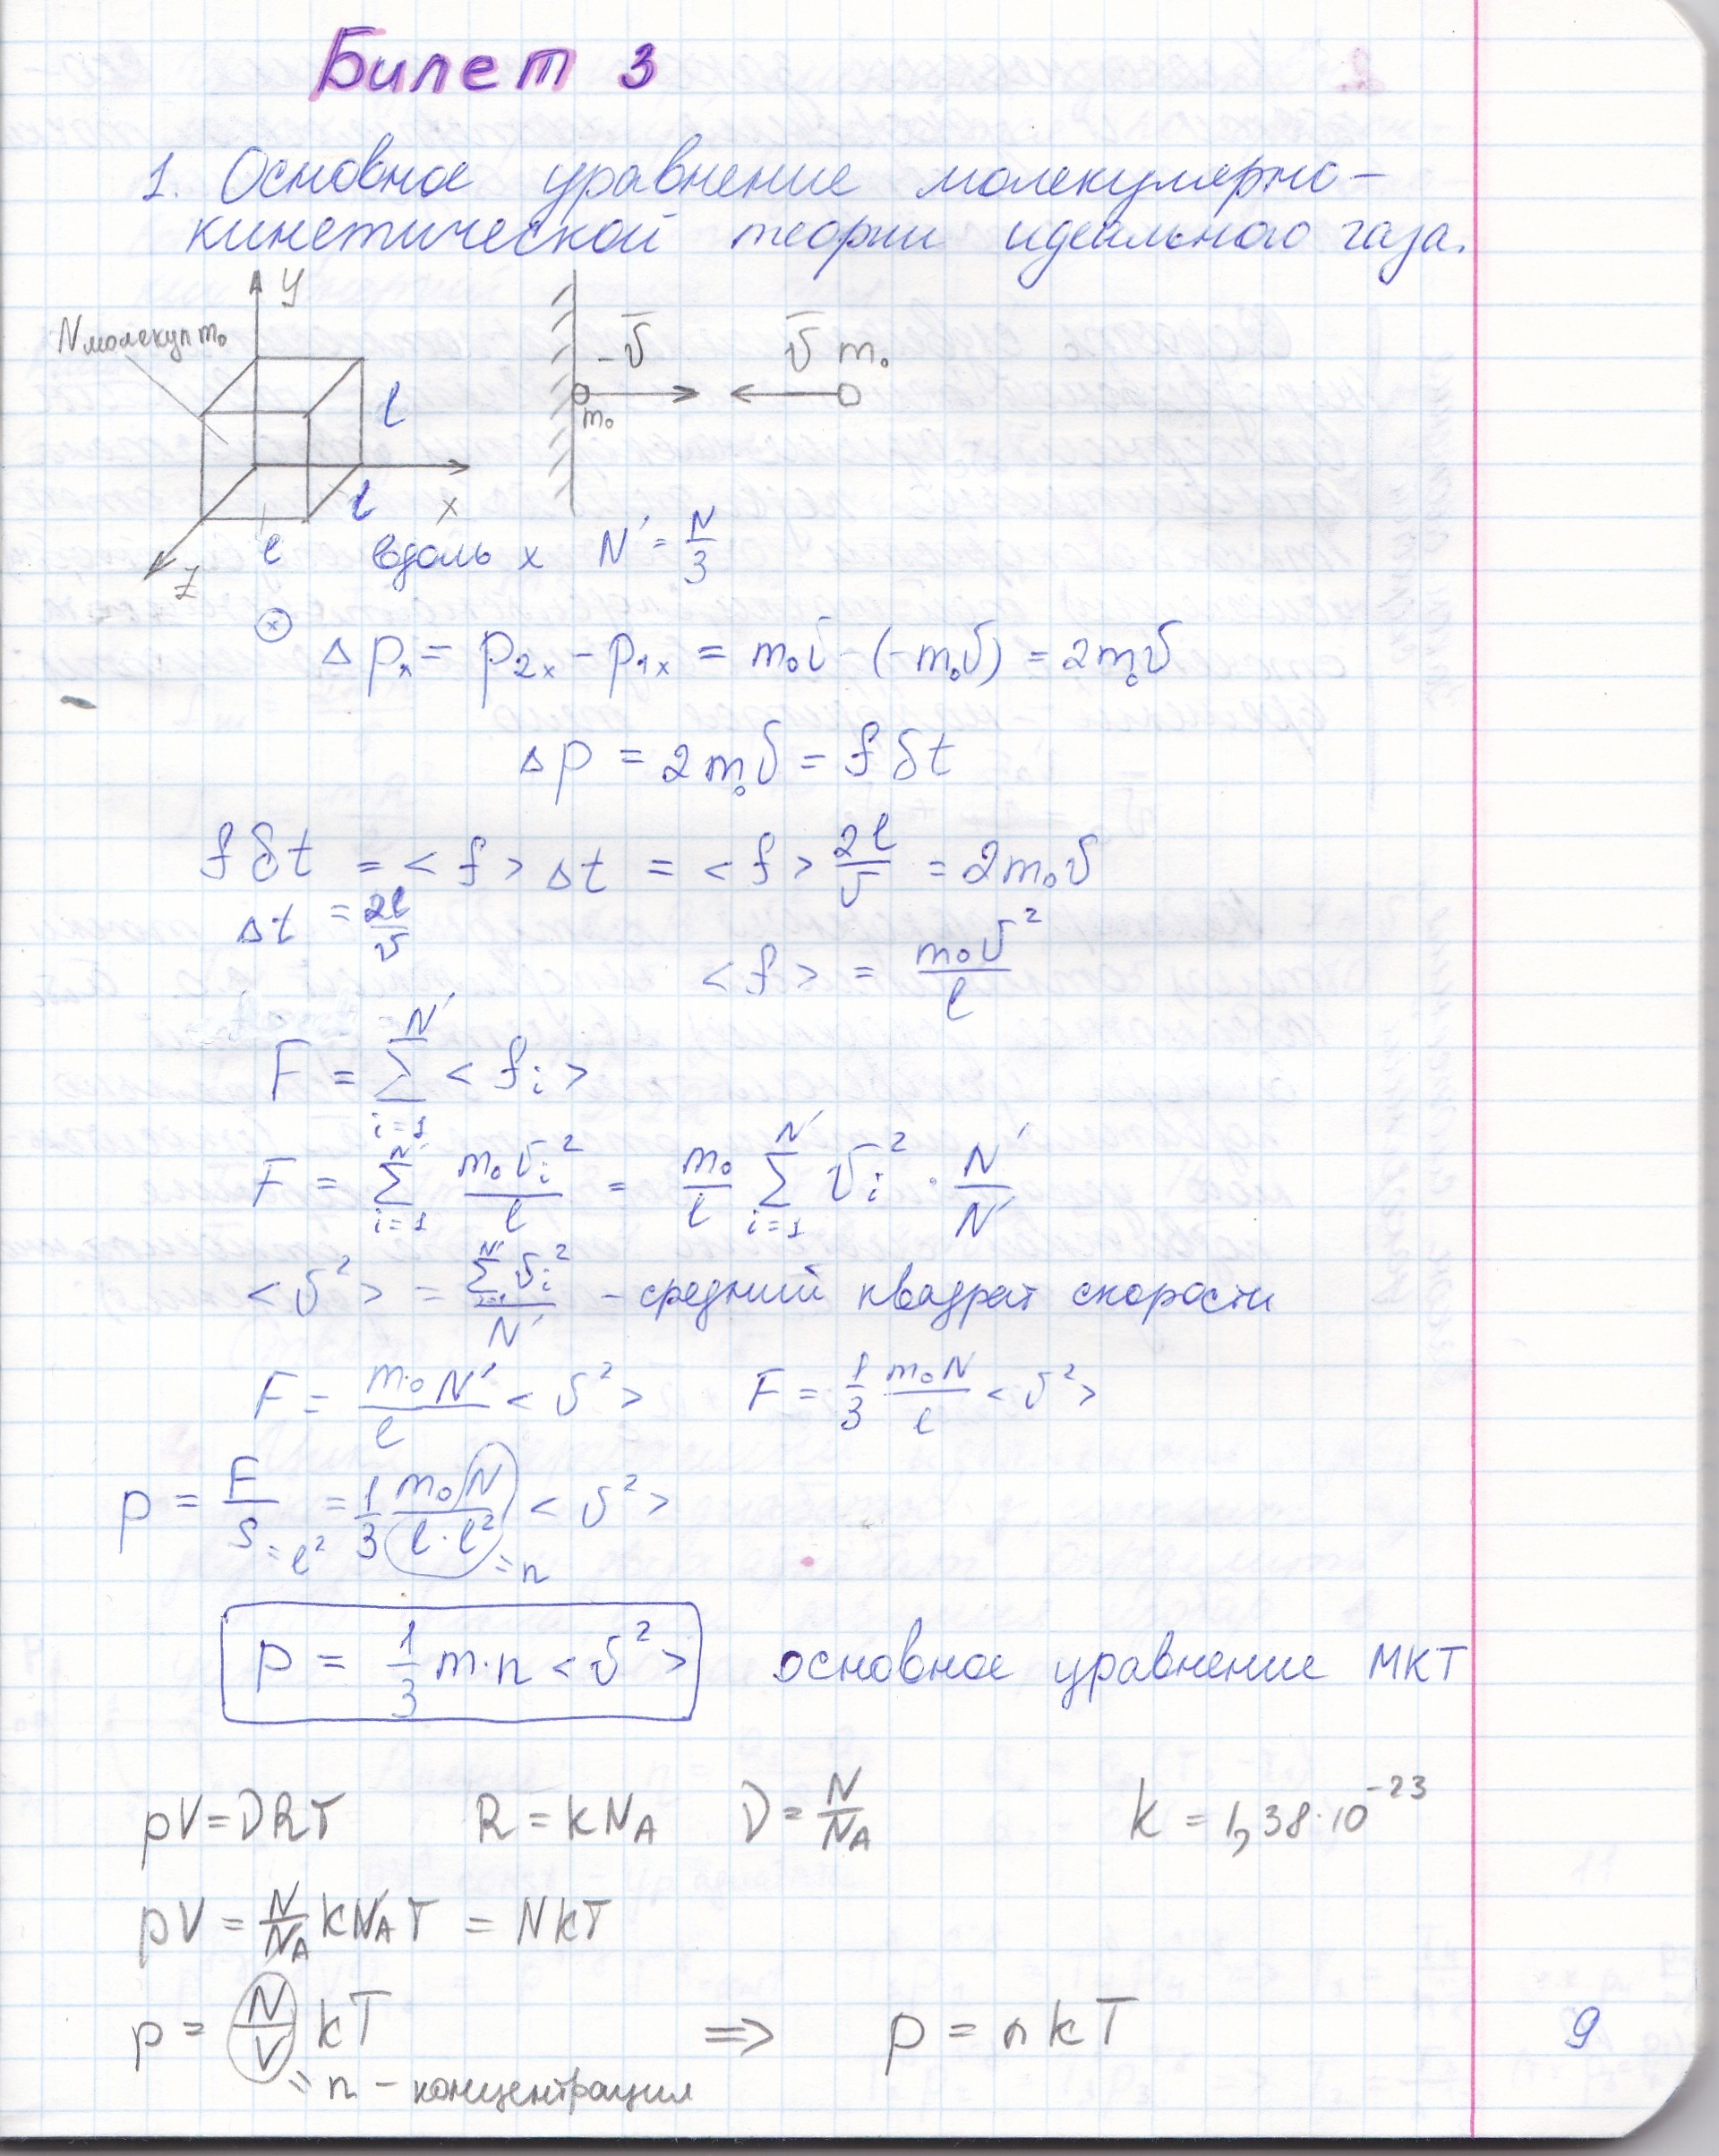 Билет 3
1. Основное уравнение молекулярно-
кинетической теории идеального газа.
y
N молекул m₀
l
l
x
l
z
-v̅
v̅ m₀
m₀
вдоль x N' = N/3
ⓧ Δpₓ = p₂ₓ - p₁ₓ = m₀v - (-m₀v) = 2m₀v
Δp = 2m₀v = f δt
f δt = <f> Δt = <f> 2l/v = 2m₀v
Δt = 2l/v
<f> = m₀v²/l
F = ∑_{i=1}^{N'} <fᵢ>
F = ∑_{i=1}^{N'} m₀vᵢ²/l = m₀/l ∑_{i=1}^{N'} vᵢ² · N'/N'
<v²> = ∑_{i=1}^{N'} vᵢ²/N' - средний квадрат скорости
F = m₀N'/l <v²> F = 1/3 m₀N/l <v²>
p = F/S = 1/3 m₀N/(l·l²) <v²>
=l² =n
p = 1/3 m·n <v²> основное уравнение МКТ
pV = νRT R = kN_A ν = N/N_A k = 1,38·10⁻²³
pV = N/N_A kN_A T = NkT
p = N/V kT ⇒ p = nkT
= n - концентрация
9